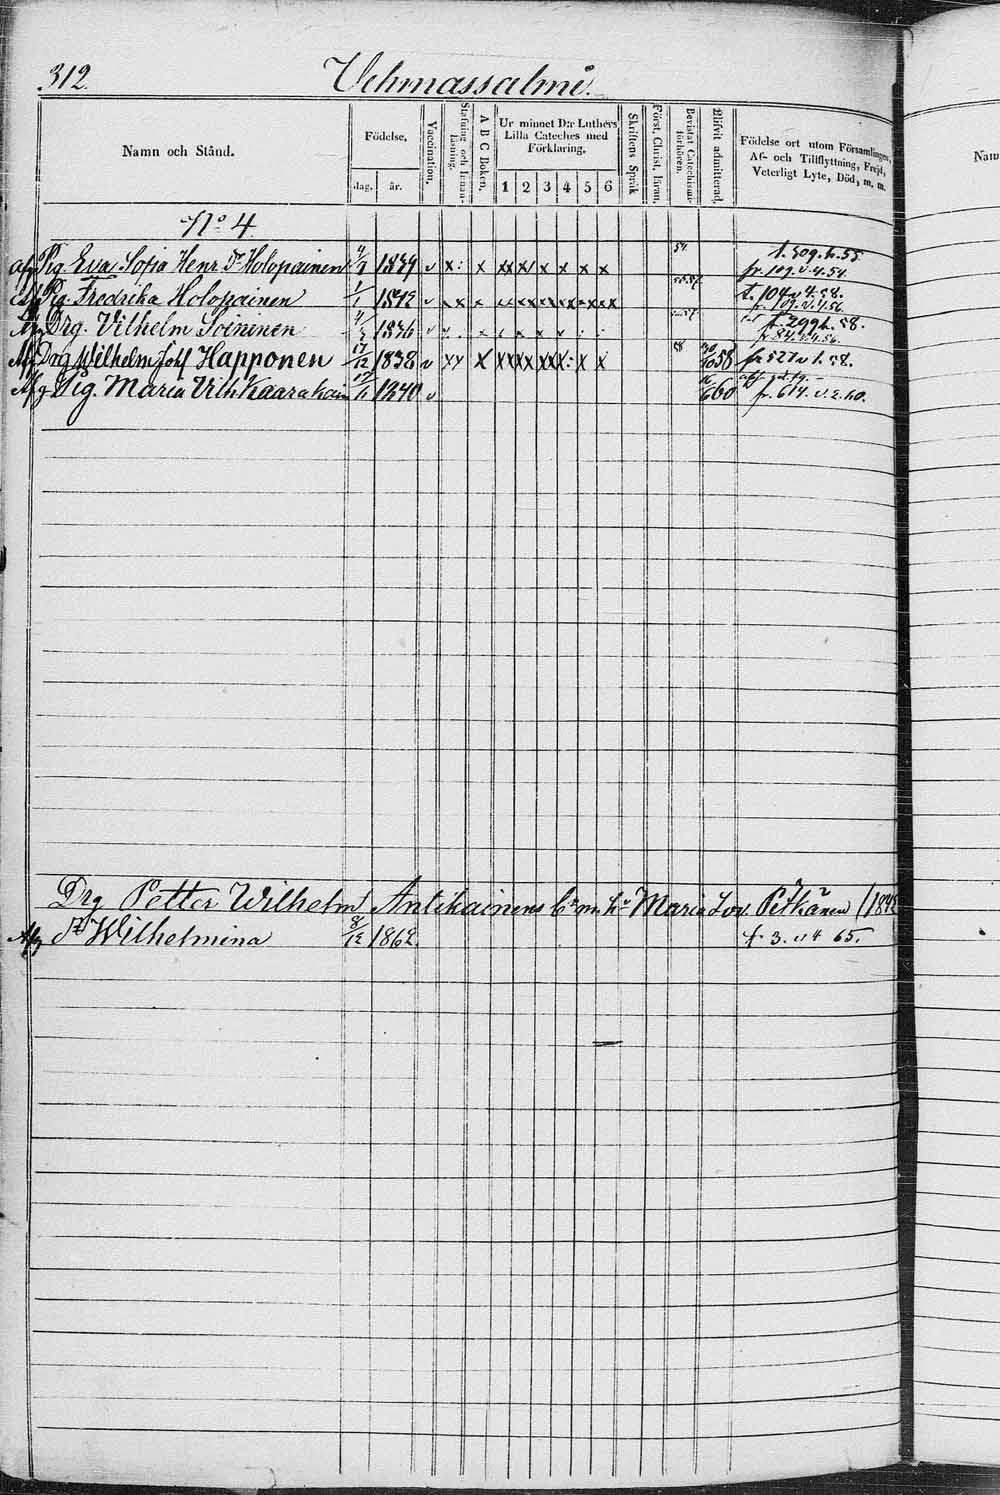 312. Vehmassalmi.
Namn och Stånd. Födelse, dag, år. Vaccination, Stafning och Innanläsning. A B C Boken, Ur minnet D:r Luthers Lilla Cateches med Förklaring. 1 2 3 4 5 6 Skriftens Språk Först. Christ. läran. Bevistat Catechismiförhören. Blifvit admitterad. Födelse ort utom Församlingen, Af- och Tillflyttning, Frejd, Veterligt Lyte, Död, m. m.
Nam
N:o 4.
Afg Pig. Eva Sofia Henr. Dr Holopainen 1839 v x : x xx x x x x x x 54. t. 309. h. 55. fr. 109. v. 4. 54.
Pig. Fredrika Holopainen 1/1 1842 v t. 104 v. 4. 58. fr. 109. v. 4. 56.
Drg. Vilhelm Soininen 1836 v t. 299 h. 58. fr. 84. v. 4. 56.
Afg Drg Wilhelm Johf Happonen 17/12 1838 v xx x xx xx xx x: x x 58 30/10 58 fr. 527 v. 1. 58.
Afg Pig. Maria Vilh Kaarakain 1840 v 60 fr. 614. v. 2. 60.
Drg Petter Wilhelm Antikainens hu Maria Lov. Pitkänen
Afg Dr Wilhelmina 8/12 1862. t. 3. v 4 65.